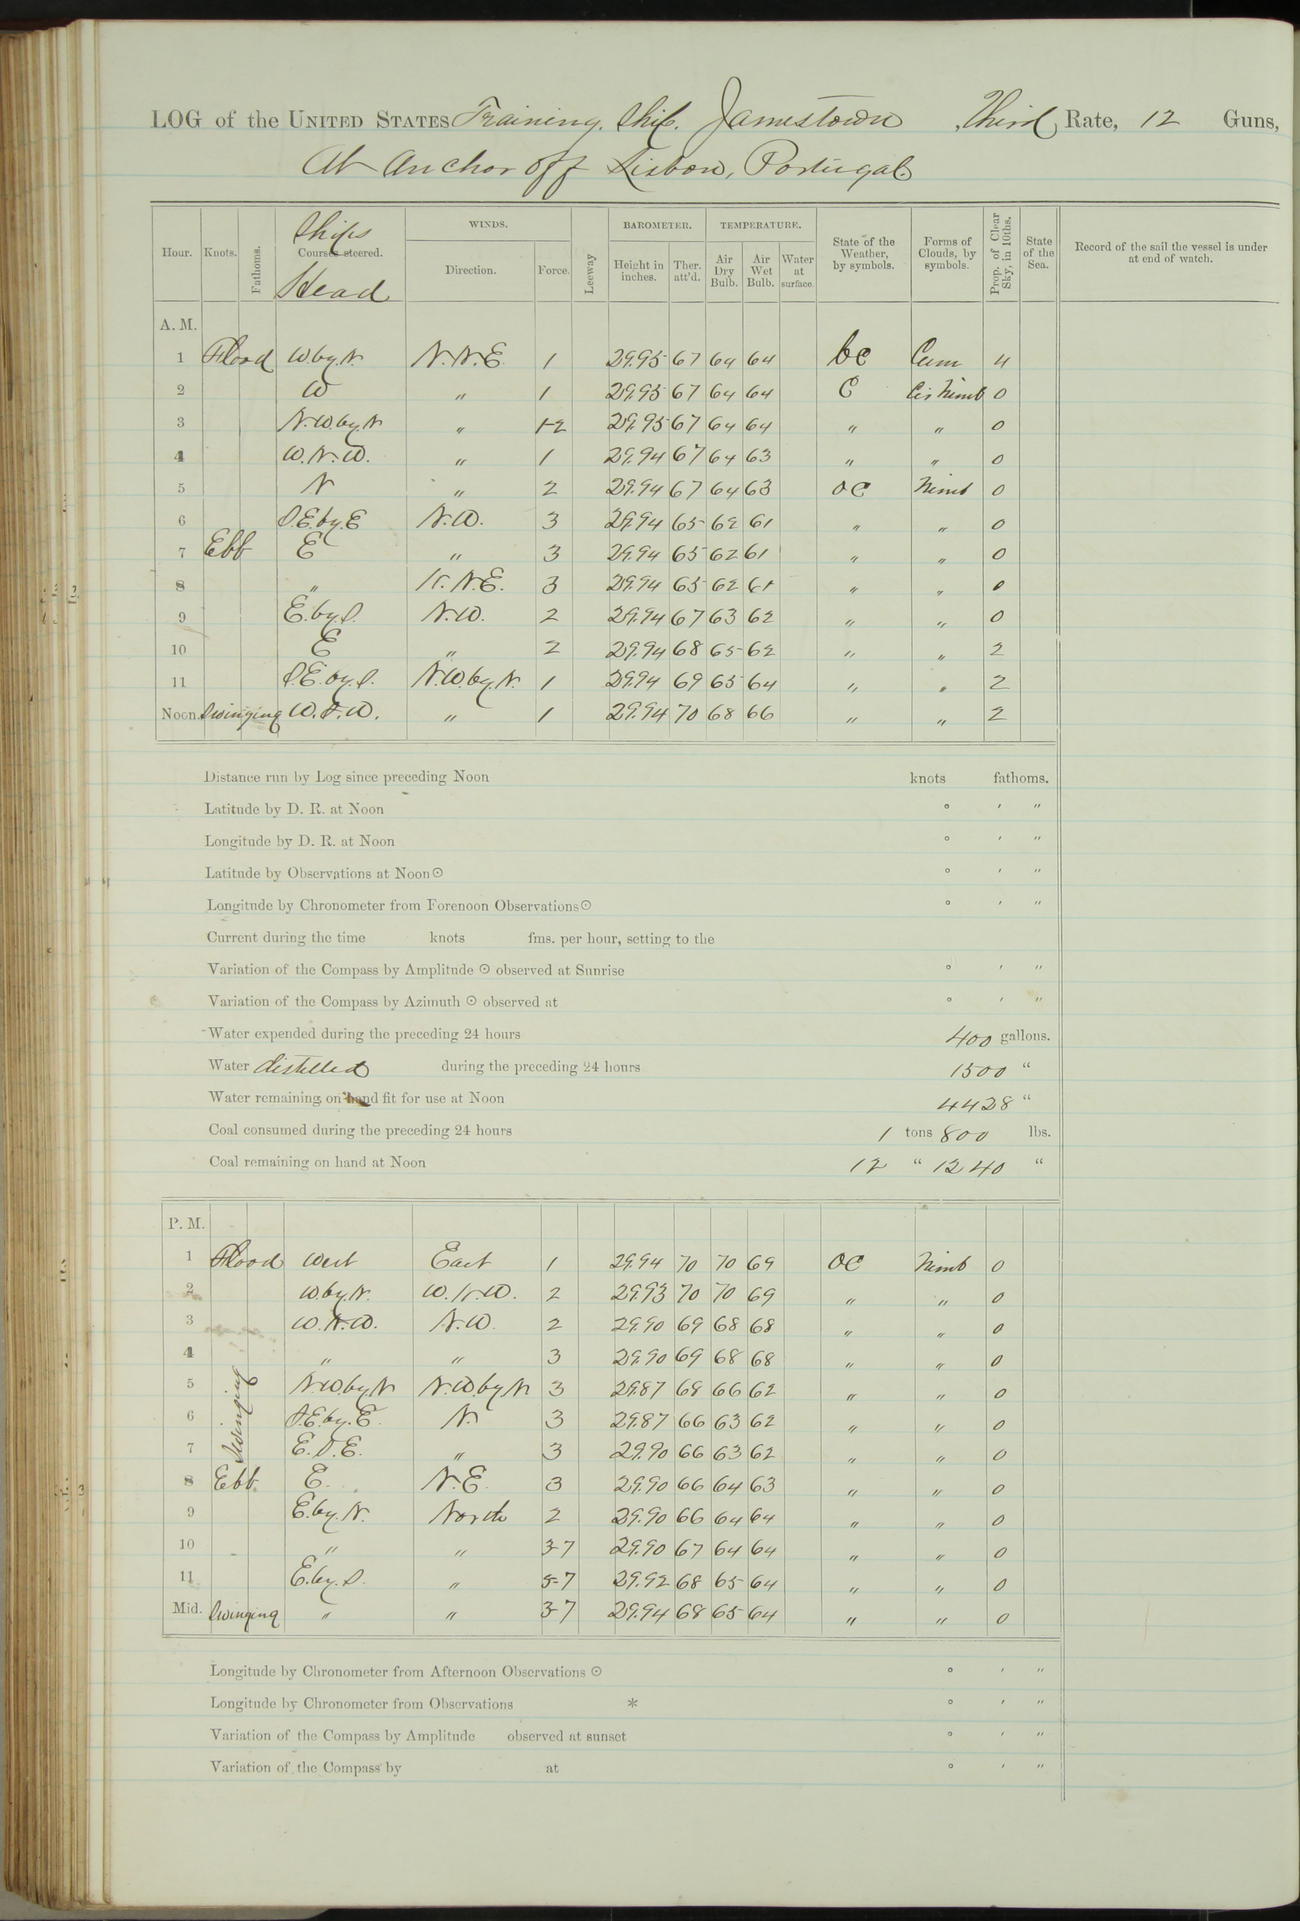 LOG of the UNITED STATES Training Ship Jamestown, Third Rate, 12 Guns,
At Anchor off Lisbon, Portugal.
Hour. Knots. Fathoms. Ships Courses steered. Head WINDS. Direction. Force. Leeway BAROMETER. Height in inches. Ther. att'd. TEMPERATURE. Air Dry Bulb. Air Wet Bulb. Water at surface. State of the Weather, by symbols. Forms of Clouds, by symbols. Prop. of Clear Sky, in 10ths. State of the Sea. Record of the sail the vessel is under at end of watch.
A. M.
1 Flood W by N. N.N.E. 1 29.95 67 64 64 bc Cum 4
2 W " 1 29.95 67 64 64 C Cir Nimb 0
3 N.W. by N " 1-2 29.95 67 64 64 " " 0
4 W.N.W. " 1 29.94 67 64 63 " " 0
5 N " 2 29.94 67 64 63 OC Nimb 0
6 S.E. by E N.W. 3 29.94 65 62 61 " " 0
7 Ebb E " 3 29.94 65 62 61 " " 0
8 " N.N.E. 3 29.94 65 62 61 " " 0
9 E. by S. N.W. 2 29.94 67 63 62 " " 0
10 E " 2 29.94 68 65 62 " " 2
11 S.E. by S. N.W. by N. 1 29.94 69 65 64 " " 2
Noon. Swinging W.S.W. " 1 29.94 70 68 66 " " 2
Distance run by Log since preceding Noon knots fathoms.
Latitude by D. R. at Noon ° ' "
Longitude by D. R. at Noon ° ' "
Latitude by Observations at Noon ☉ ° ' "
Longitude by Chronometer from Forenoon Observations ☉ ° ' "
Current during the time knots fms. per hour, setting to the
Variation of the Compass by Amplitude ☉ observed at Sunrise ° ' "
Variation of the Compass by Azimuth ☉ observed at ° ' "
Water expended during the preceding 24 hours 400 gallons.
Water distilled during the preceding 24 hours 1500 "
Water remaining on hand fit for use at Noon 4428 "
Coal consumed during the preceding 24 hours 1 tons 800 lbs.
Coal remaining on hand at Noon 12 " 1240 "
P. M.
1 Flood West East 1 29.94 70 70 69 OC Nimb 0
2 W. by N. W.N.W. 2 29.93 70 70 69 " " 0
3 W.N.W. N.W. 2 29.90 69 68 68 " " 0
4 " " 3 29.90 69 68 68 " " 0
5 N.W. by N N.W. by N 3 29.87 68 66 62 " " 0
6 Swinging S.E. by E. N. 3 29.87 66 63 62 " " 0
7 E.S.E. " 3 29.90 66 63 62 " " 0
8 Ebb E. N.E. 3 29.90 66 64 63 " " 0
9 E. by N. North 2 29.90 66 64 64 " " 0
10 " " 3-7 29.90 67 64 64 " " 0
11 E. by S. " 5-7 29.92 68 65 64 " " 0
Mid. Swinging " " 3-7 29.94 68 65 64 " " 0
Longitude by Chronometer from Afternoon Observations ☉ ° ' "
Longitude by Chronometer from Observations * ° ' "
Variation of the Compass by Amplitude observed at sunset ° ' "
Variation of the Compass by at ° ' "